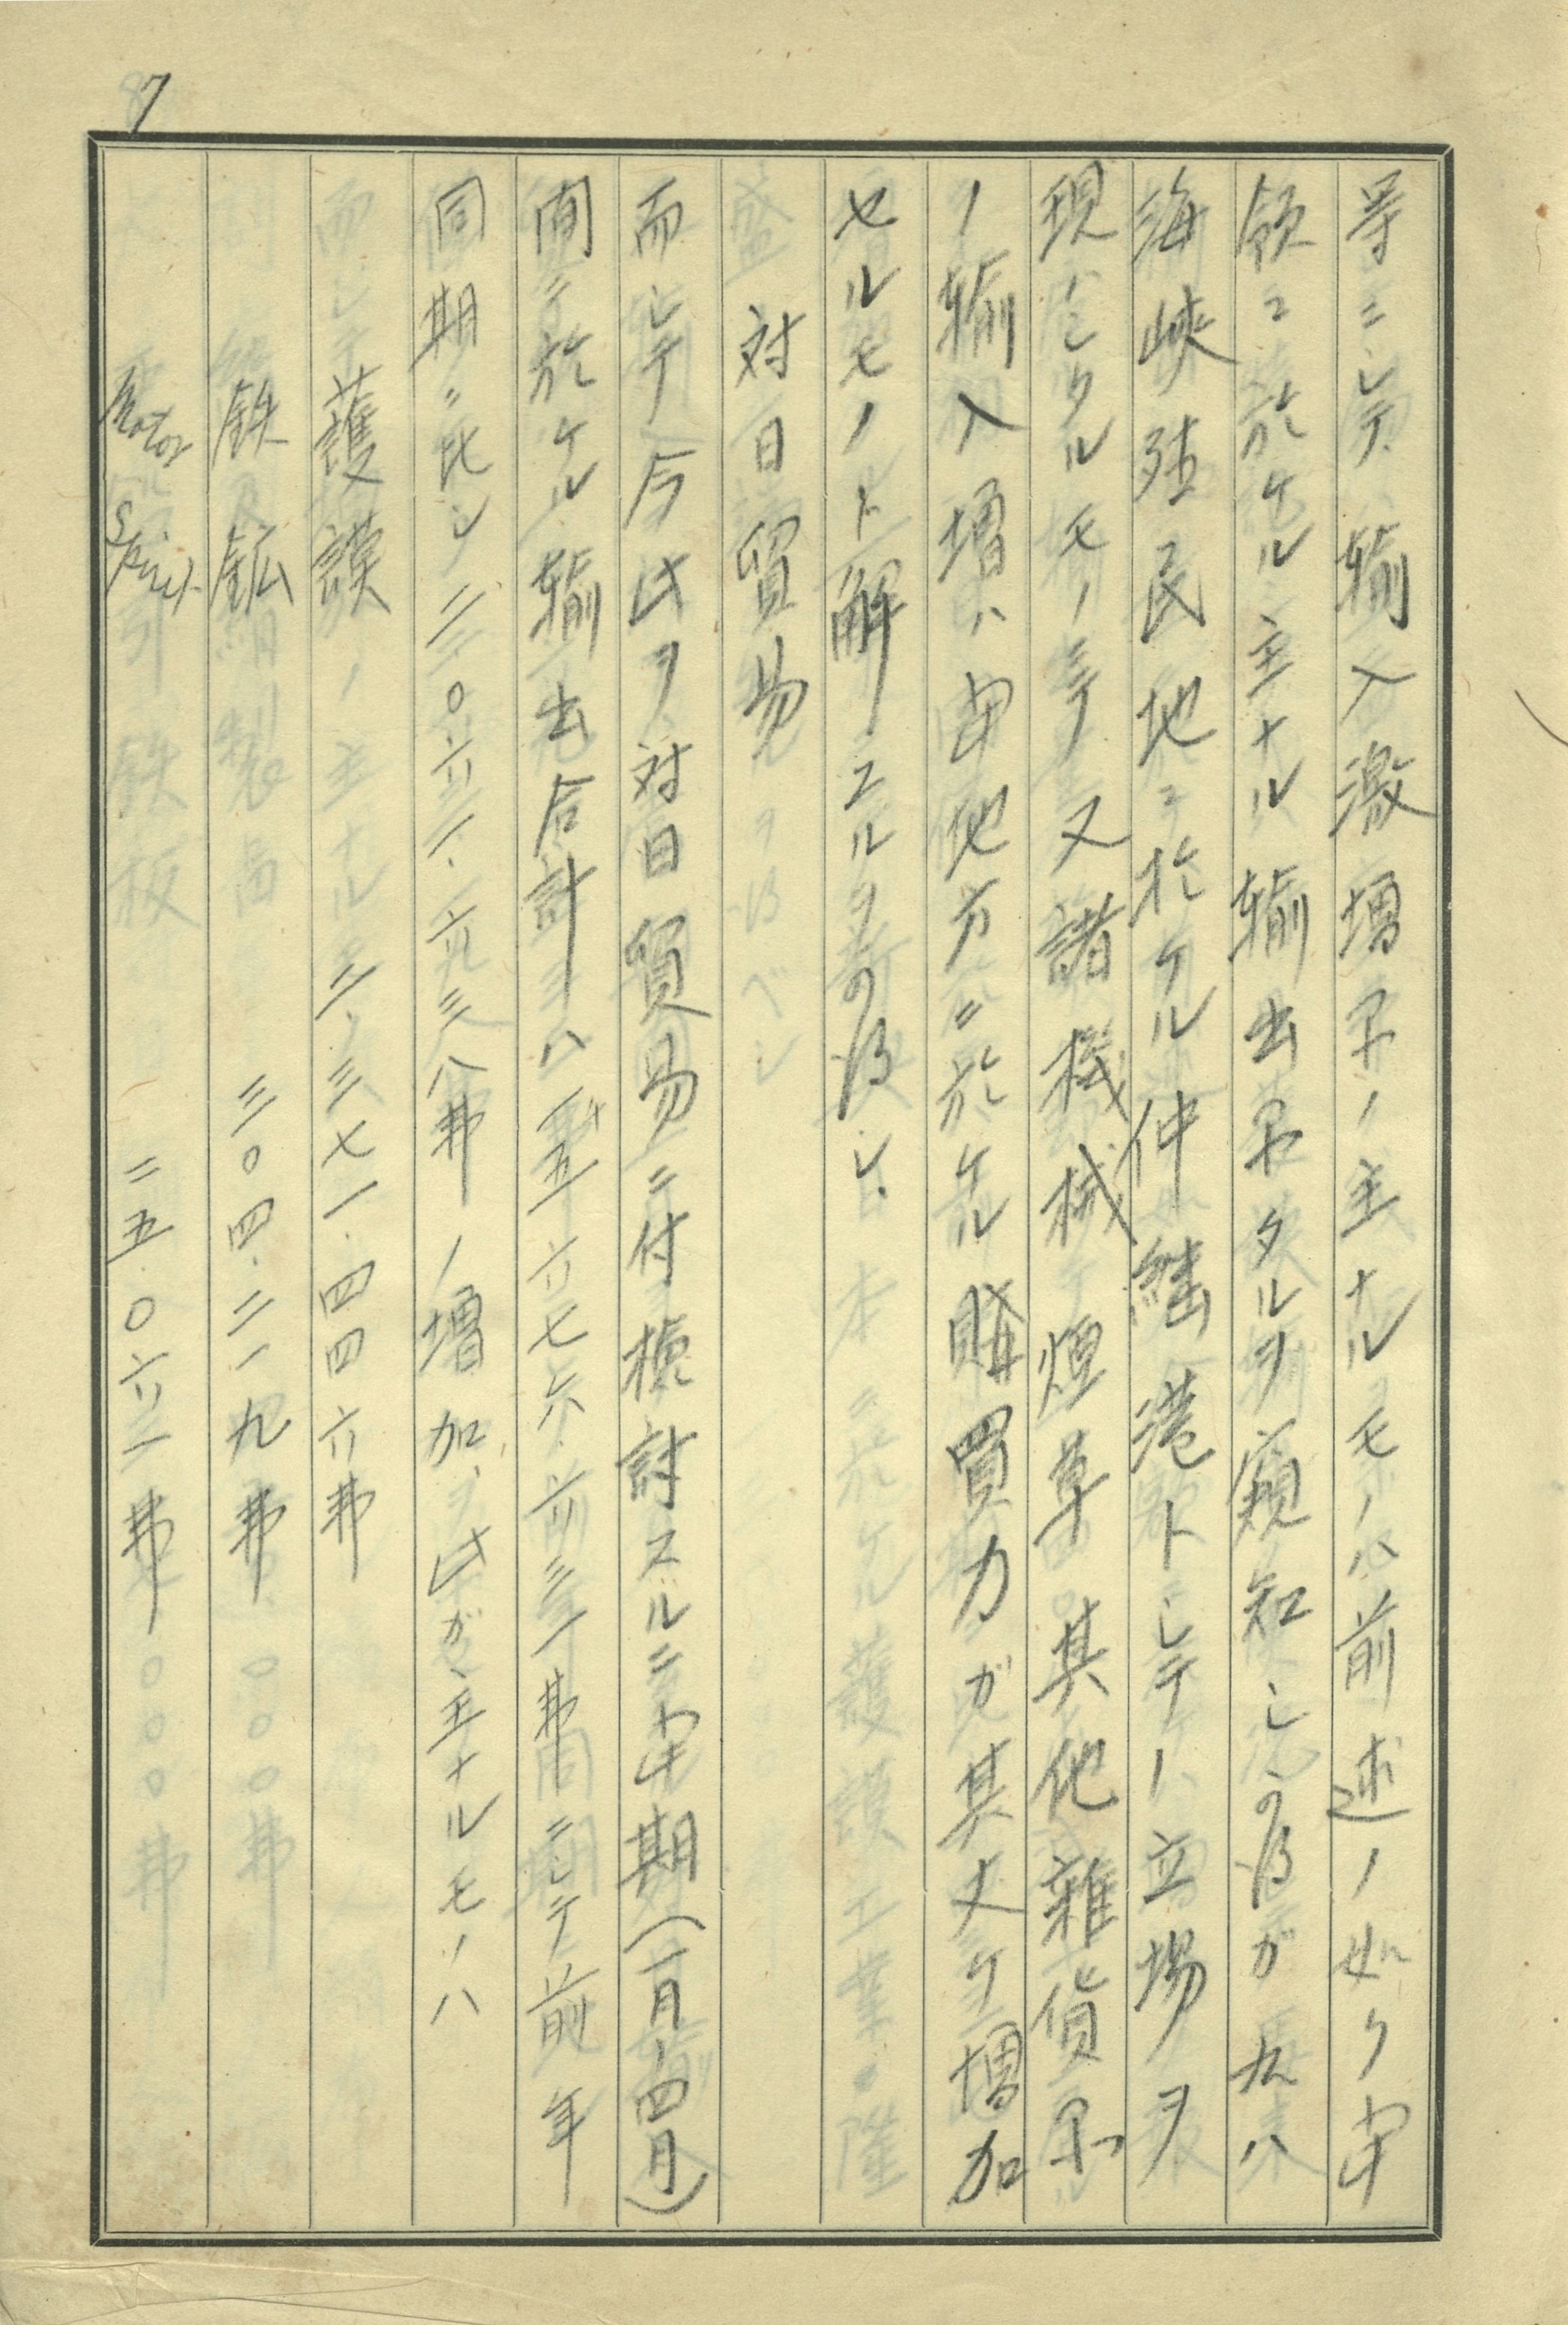 7
等ニシテ輸入激増品ノ主ナルモノハ前述ノ如ク当
領ニ於ケル主ナル輸出品タルヲ窺知シ得ルガ之ハ
海峡殖民地ニ於ケル仲継港トシテノ立場ヲ
現ハシタルモノニテ又諸機械煙草其他雑貨等
ノ輸入増ハ由他方ニ於ケル購買力ガ其丈ケ増加
セルモノト解シエルヲ得ベシ
対日貿易
而シテ今此ヲ対日貿易ニ付検討スルニ当期(一月-四月)
間ニ於ケル輸出合計ハ 五六七六.六三一弗ニシテ前年
同期ニ比シ二〇六二一.六九三八弗ノ増加ヲ此ガ主ナルモノハ
護謨 二.三七一.四四六弗
鉄鉱 三〇四.二一九弗
Motor Spirit 二五〇六二弗